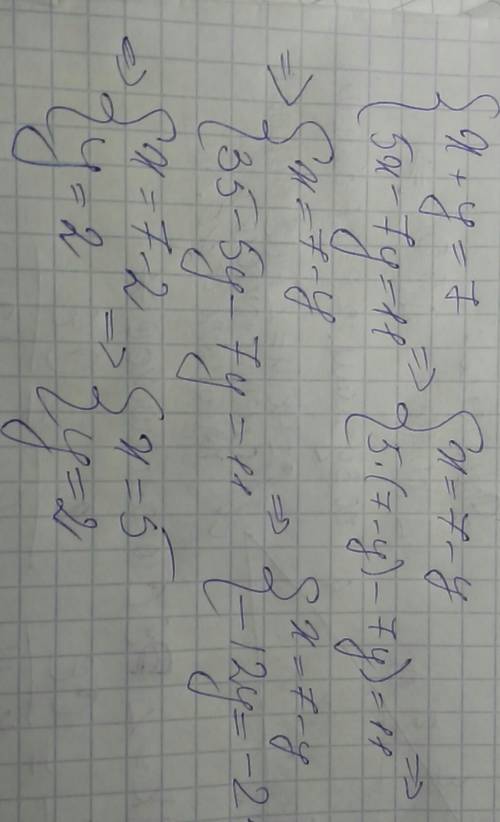 { x + y = 7
{ 5x = 7y = 11 => { x = 7 - y
{ 5·(7 - y) - 7y) = 11 =>
=> { x = 7 - y
{ 35 - 5y - 7y = 11 => { x = 7 - y
{ - 12y = - 2
=> { x = 7 - 2
{ y = 2 => { x = 5
{ y = 2